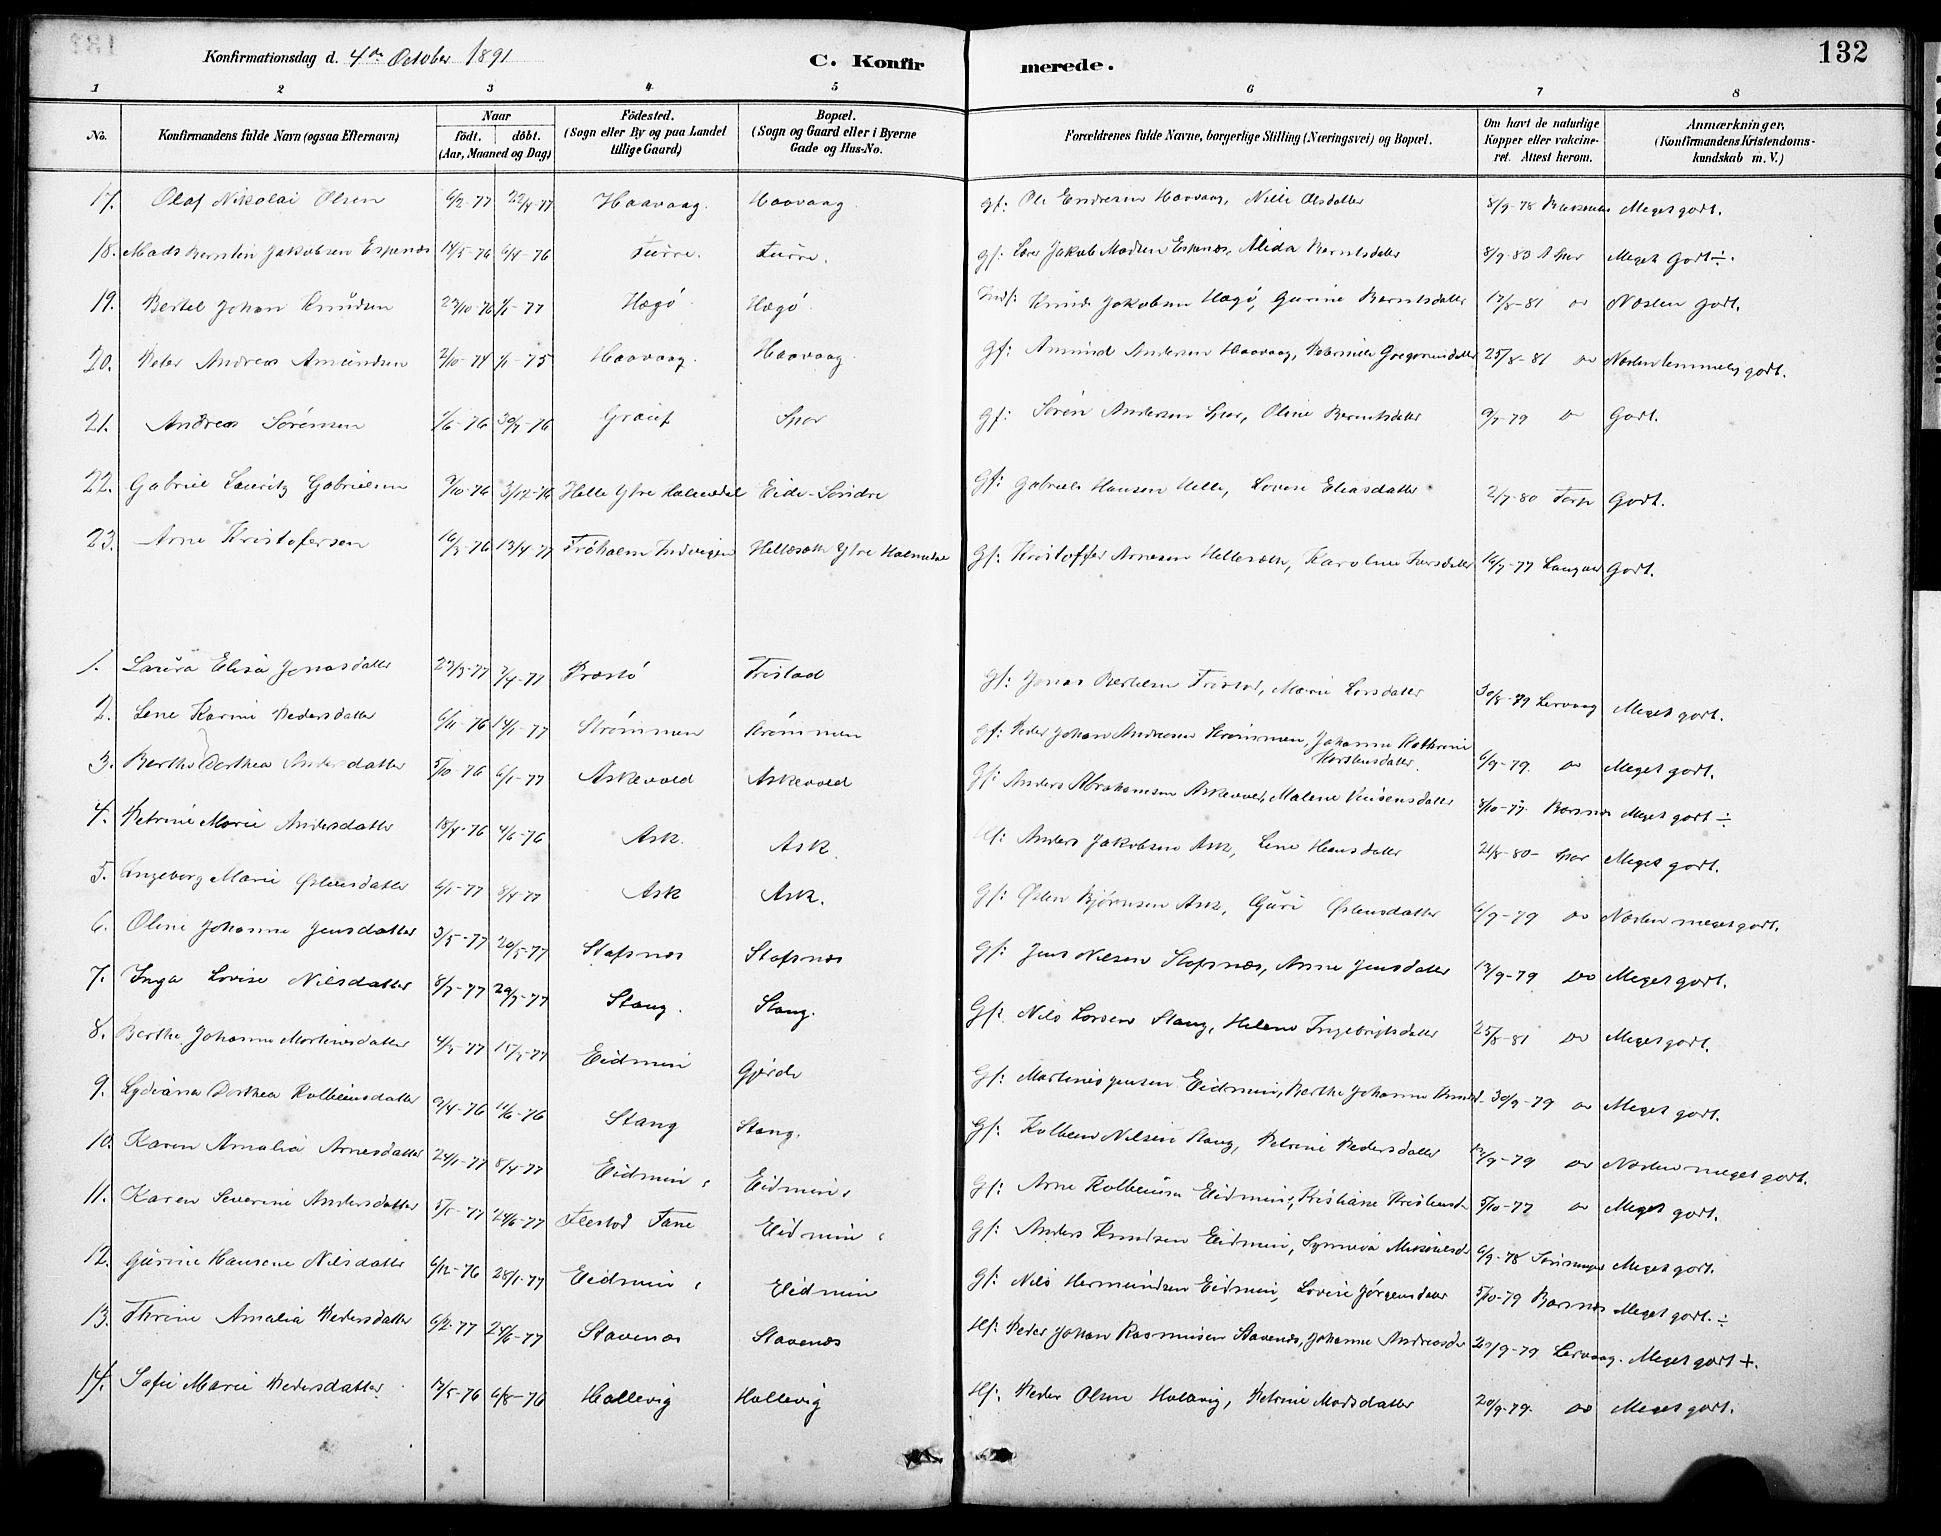 Konfirmationsdag d. 4de October 1891 C. Konfirmerede. 132
1 2 3 4 5 6 7 8
No. Konfirmandens fulde Navn (ogsaa Efternavn) Naar födt. döbt. (Aar, Maaned og Dag) Födested. (Sogn eller By og paa Landet tillige Gaard) Bopæl. (Sogn og Gaard eller i Byerne Gade og Hus-No. Forældrenes fulde Navne, borgerlige Stilling (Næringsvei) og Bopæl. Om havt de naturlige Kopper eller vakcineret. Attest herom. Anmærkninger, (Konfirmandens Kristendomskundskab m. V.)
17. Olaf Nikolai Olsen 6/2-77 22/4-77 Haavaag. Haavaag gf: Ole Endresen Haavaag, Nille Olsdatter 8/9-78 Meget godt.
18. Mads Berntin Jakobsen Espenæs 14/5-76 6/4-76 Furre. Furre. gf: Jakob Madsen Espenæs, Alida Berntsdatter 8/9-83 Meget Godt ÷.
19. Bertel Johan Knudsen 23/10-76 1/1-77 Hægö Hægö Knud Jakobsen Hægö, Gurine Berntsdatter 17/8-81 Do Næsten godt.
20. Peter Andreas Amundsen 2/10-74 1/1-75 Haavaag. Haavaag gf: Amund Andersen Haavaag, Gregoriusdatter 25/8-81 Do Næsten temmelig godt.
21. Andreas Sörensen 1/6-76 30/7-76 Spor gf: Sören Andersen Spor, Oline Berntsdatter 9/7-79 Do Godt.
22. Gabriel Lauritz Gabrielsen 9/10-76 3/12-76 Helle Ytre Holmedal Eide-Söndre gf: Gabriel Hansen Helle, Lovise Eliasdatter 2/7-80 Godt.
23. Arne Kristofersen 16/3-76 13/4-77 Indvigen Hellesæth Ytre Holmedal Gf: Kristoffer Arnesen Hellesæth, Karoline Iversdatter 16/7-77 Godt.
1. Laura Elisa Jonasdatter 23/3-77 2/4-77 Præstö Tristad Gf: Jonas Bertelsen Tristad, Marie Larsdatter 30/8-79 Lervaag Meget godt.
2. Lene Karine Pedersdatter 6/11-76 14/1-77 Strömmen Strömmen gf: Peder Johan Andreasen Strömmen, Johanne Kathrine Karstensdatter. 6/9-79. Do Meget godt.
3. Berthe Dorthea Andersdatter 5/10-76 6/1-77 Askevold Askevold gf: Anders Abrahamsen Askevold, Malene 8/10-77 Meget godt ÷
4. Petrine Marie Andersdatter 18/4-76 4/6-76 Ask. Ask. Anders Jakobsen Ask, Lene Hansdatter 21/8-80- Meget godt.
5. Ingeborg Marie Östensdatter 6/1-77 8/4-77 Ask Ask. Gf: Östen Björnsen Ask, Guri Östensdatter 6/9-79 Do Næsten meget godt.
6. Oline Johanne Jensdatter 3/5-77 20/5-77 Stafsnæs Stafsnæs Gf: Jens Nilsen Stafsnæs, Anne Jensdatter 12/9-79 Do Meget godt.
7. Inga Lovise Nilsdatter 8/7-77 29/7-77 Stang. Stang. Gf: Nils Larsen Stang, Helene Ingebrigtsdatter 25/8-81 Do Meget godt.
8. Berthe Johanne Martinesdatter 4/3-77 15/7-77 Eidmin Gjerde Gf: Martines Jensen Eidmin, Berthe Johanne 30/9-79 Do Meget godt.
9. Lydiana Dorthea Kolbeinsdatter 9/4-76 12/6-76 Stang Stang. Gf: Kolbein Nilsen Stang, Petrine Pedersdatter 12/9-79 Do Næsten meget godt.
10. Karen Amalia Arnesdatter 24/1-77 8/4-77 Eidmin Eidmin Gf: Arne Kolbeinsen Eidmin, Kristiane 5/10-77 Do Meget godt.
11. Karen Severine Andersdatter 5/5-77 24/6-77 Eidmin Gf: Anders Knudsen Eidmin, Synneva 6/9-78 Meget godt.
12. Gurine Hansene Nilsdatter 6/12-76 28/1-77 Eidmin Eidmin Gf: Nils Hermundsen Eidmin, Lovise Jörgensdatter 5/10-79 Meget godt. ÷
13. Thrine Amalia Pedersdatter 6/2-77 24/6-77 Stavenæs Stavenæs Hf: Peder Johan Rasmusen Stavenæs, Johanne Andreasdr 20/9-79 Lervaag. Meget godt +.
14. Sofie Marie Pedersdatter 17/5-76 6/8-76 Hallevig Hallevig Hf: Peder Olsen Hallevig, Petrine Madsdatter 20/9-79. Do Meget godt.